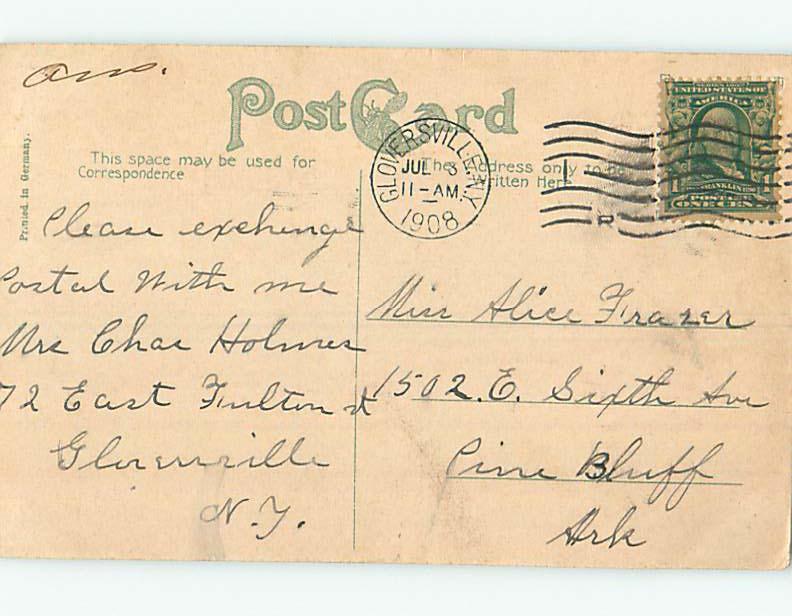 Ans.
Post Card
This space may be used for
Correspondence
The Address only to be
written Here
Printed in Germany.
GLOVERSVILLE, N.Y.
JUL 3
11-AM.
1908
R
SERIES 1902
UNITED STATES OF
AMERICA
FRANKLIN
POSTAGE
1 ONE CENT 1
Please exchange
Postal With me
Mrs Chas Holmes
72 East Fulton st
Gloversville
N.Y.
Miss Alice Frazer
1502. E. Sixth Ave
Pine Bluff
Ark